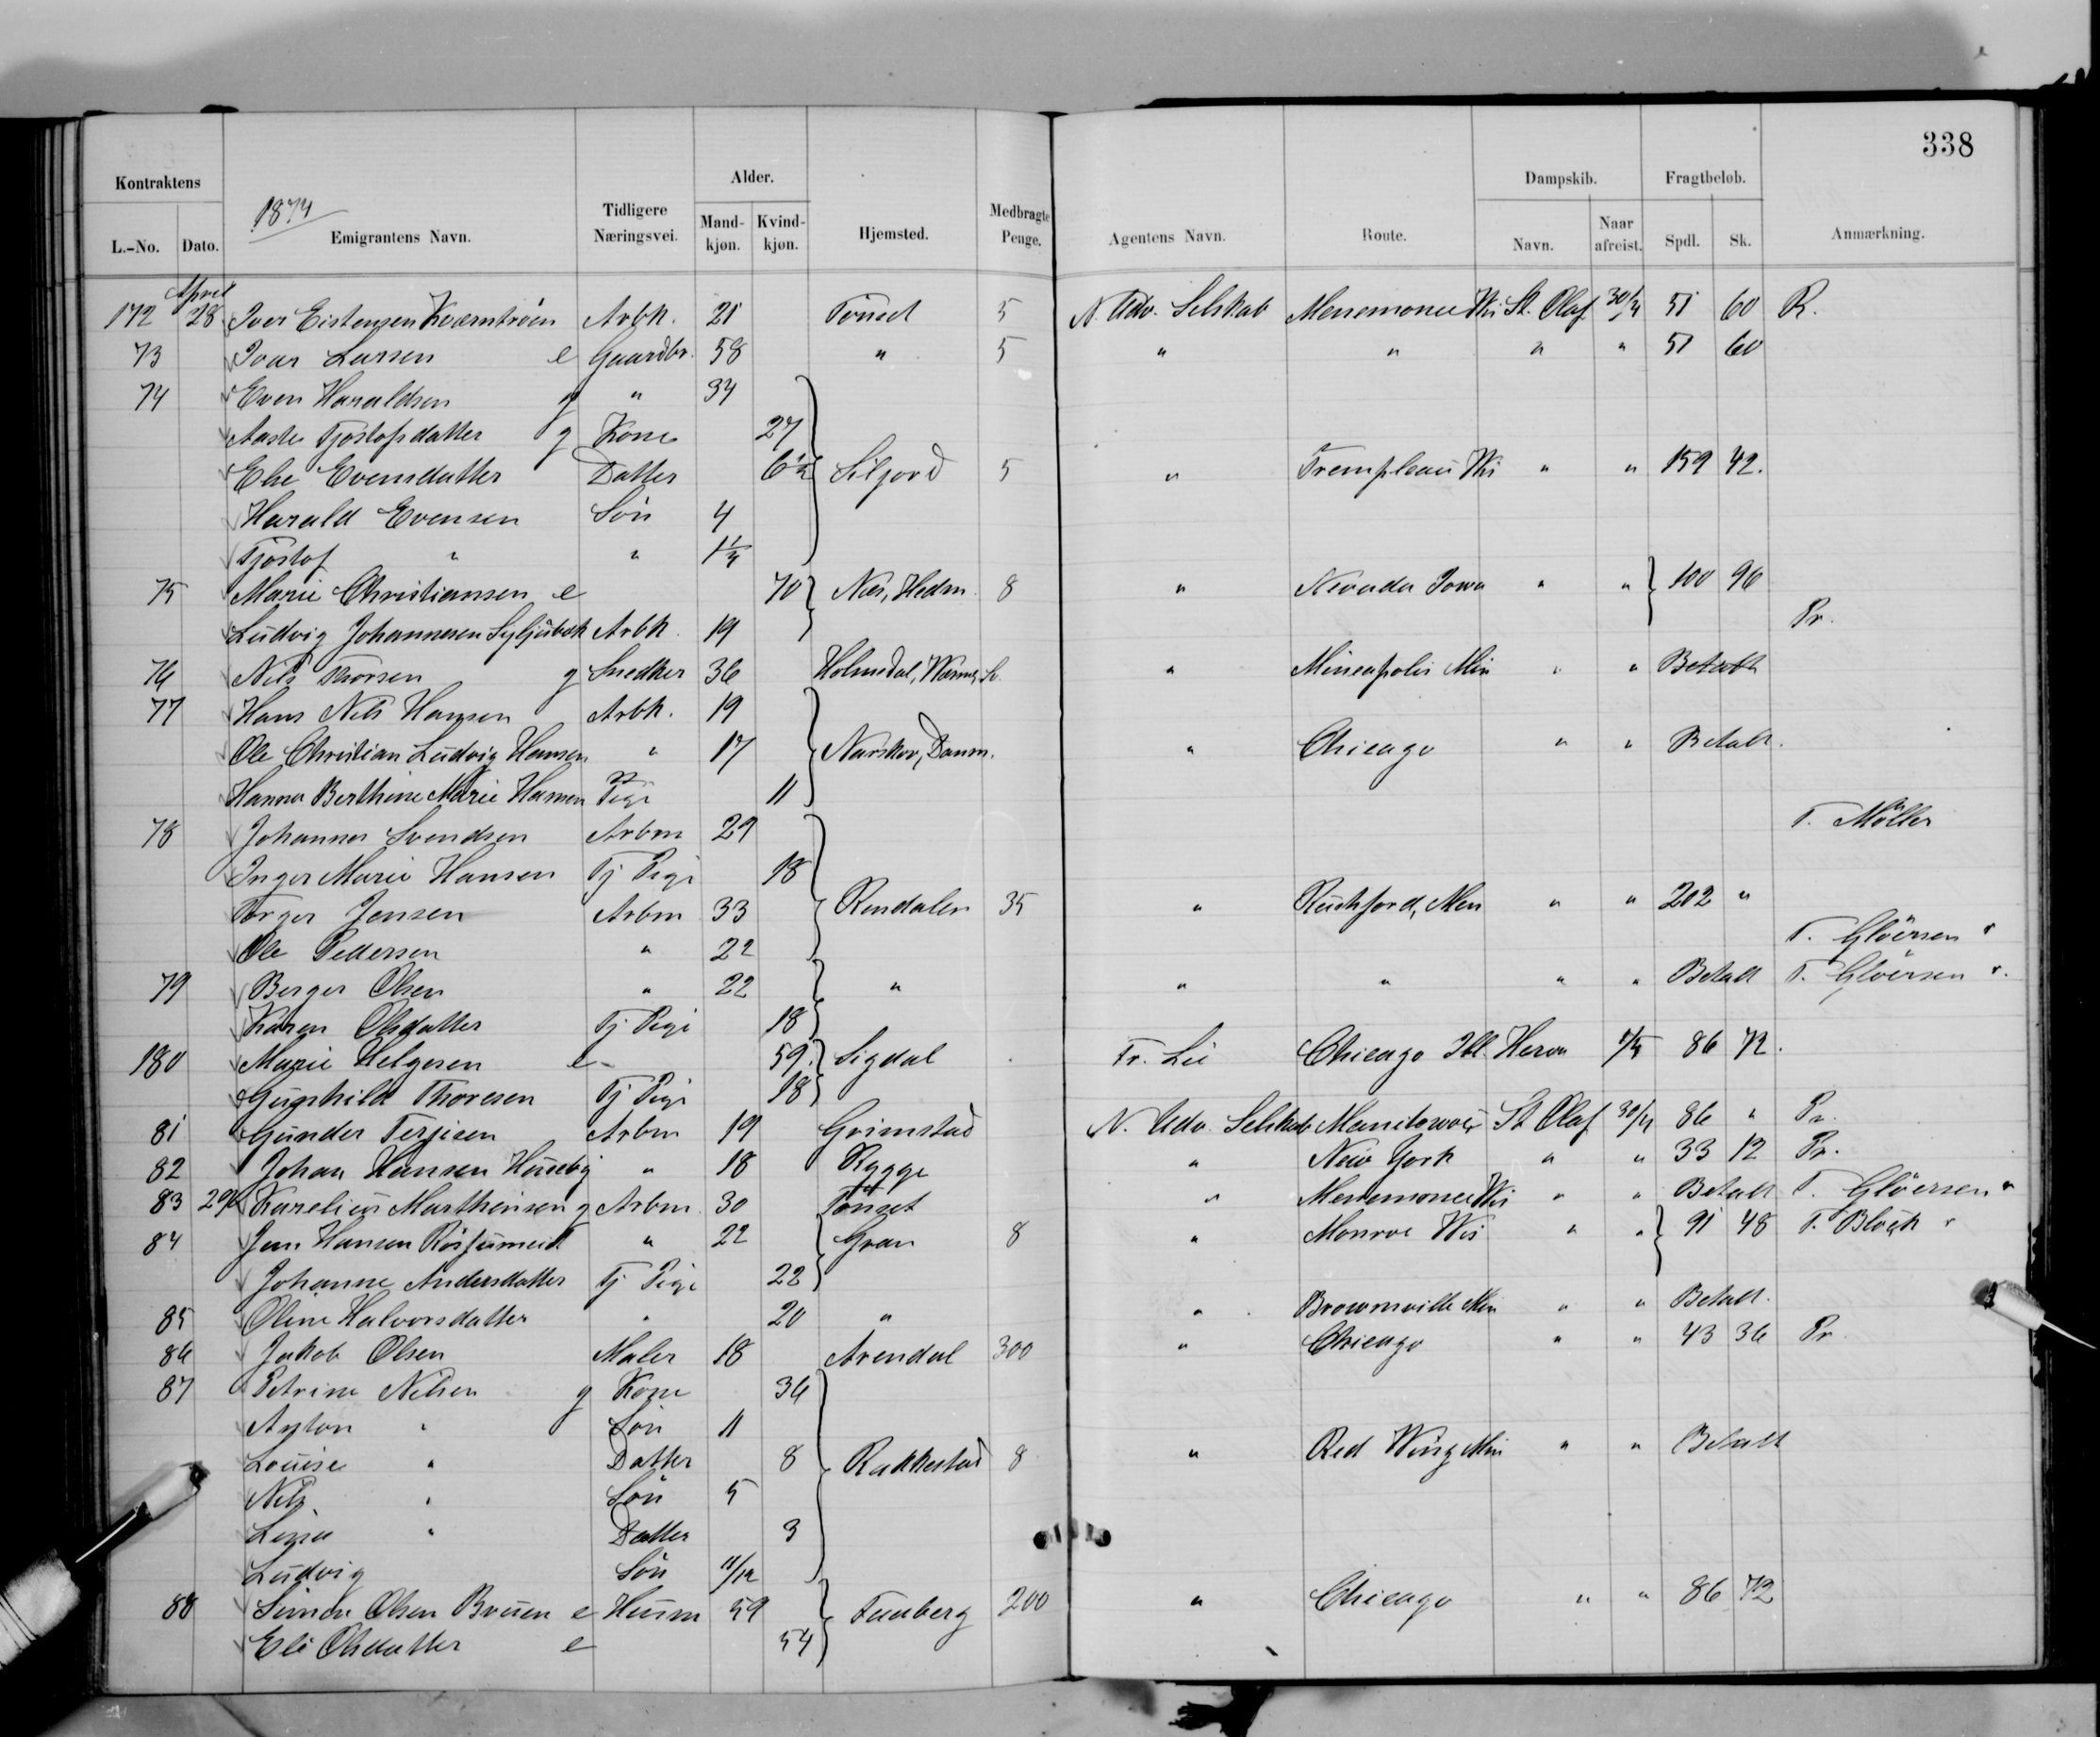 338
Kontraktens Alder. Dampskib. Fragtbeløb.
1874
L.-No. Dato. Emigrantens Navn. Tidligere Næringsvei. Mand-kjøn. Kvind-kjøn. Hjemsted. Medbragte Penge. Agentens Navn. Route. Navn. Naar afreist. Spdl. Sk. Anmærkning.
April
172 28 Iver Eistensen Kværntrøen Arbk. 21 Tönset 5 N. Udv. Selskab Menemonee Wis St. Olaf 30/4 51 60 R.
73 Ivar Larsen e Gaardbr. 58 " 5 " " " " 51 60
74 Even Haraldsen g " 34
Aaste Tjostofsdatter g Kone 27
Else Evensdatter Datter 6½ Siljord 5 " Trempleau Wis " " 159 42.
Harald Evensen Sön 4
Tjostof " " 1¼
75 Marie Christiansen e 70 Næs, Hedm. 8 " Nevada Iowa " " 100 96
Ludvig Johannesen Arbk. 19 Pr.
76 Nils Thorsen g Snedker 36 Holmedal, " Mineapolis Min " " Betalt
77 Hans Nils Hansen Arbk. 19
Ole Christian Ludvig Hansen " 17 Narskov, Danm. " Chicago " " Betalt.
Hanna Berthine Marie Hansen Pige 11
78 Johannes Svendsen Arbm 29 T. Möller
Inger Marie Hansen Tj Pige 18
Torger Jensen Arbm 33 Rendalen 35 " Rushford, Men " " 202 "
Ole Pedersen " 22 T. Glöersen "
79 Berger Olsen " 22 " " " " " Betalt T. Glöersen ".
Karen Olsdatter Tj Pige 18
180 Marie Helgesen e 59. Sigdal Fr. Lie Chicago Ill. Herm 1/5 86 72.
Gunhild Thoresen Tj Pige 18
81 Gunder Terjesen Arbm 19 Grimstad N. Udv. Selskab Manitowoc St Olaf 30/4 86 " Pr.
82 Johan Hansen Huseby " 18 Rygge " New York " " 33 12 Pr.
83 29/4 Karelius Marthinsen g Arbm. 30 Tönset " Menemonee Wis " " Betalt T. Glöersen "
84 Jens Hansen " 22 Gran 8 " Monroe Wis " " 91 48 T. Block "
Johanne Andersdatter Tj Pige 22
85 Oline Halvorsdatter " 20 " " Brownsville Min " " Betalt.
86 Jakob Olsen Maler 18 Arendal 300 " Chicago " " 43 36 Pr
87 Petrine Nelsen g Kone 36
Anton " Sön 11
Louise " Datter 8 Rakkestad 8 " Red Wing Min " " Betalt
Nils " Sön 5
Lina " Datter 3
Ludvig Sön 11/12
88 Simen Olsen Bruen e Husm 59 Faaberg 200 " Chicago " " 86 72
Eli Olsdatter e 54